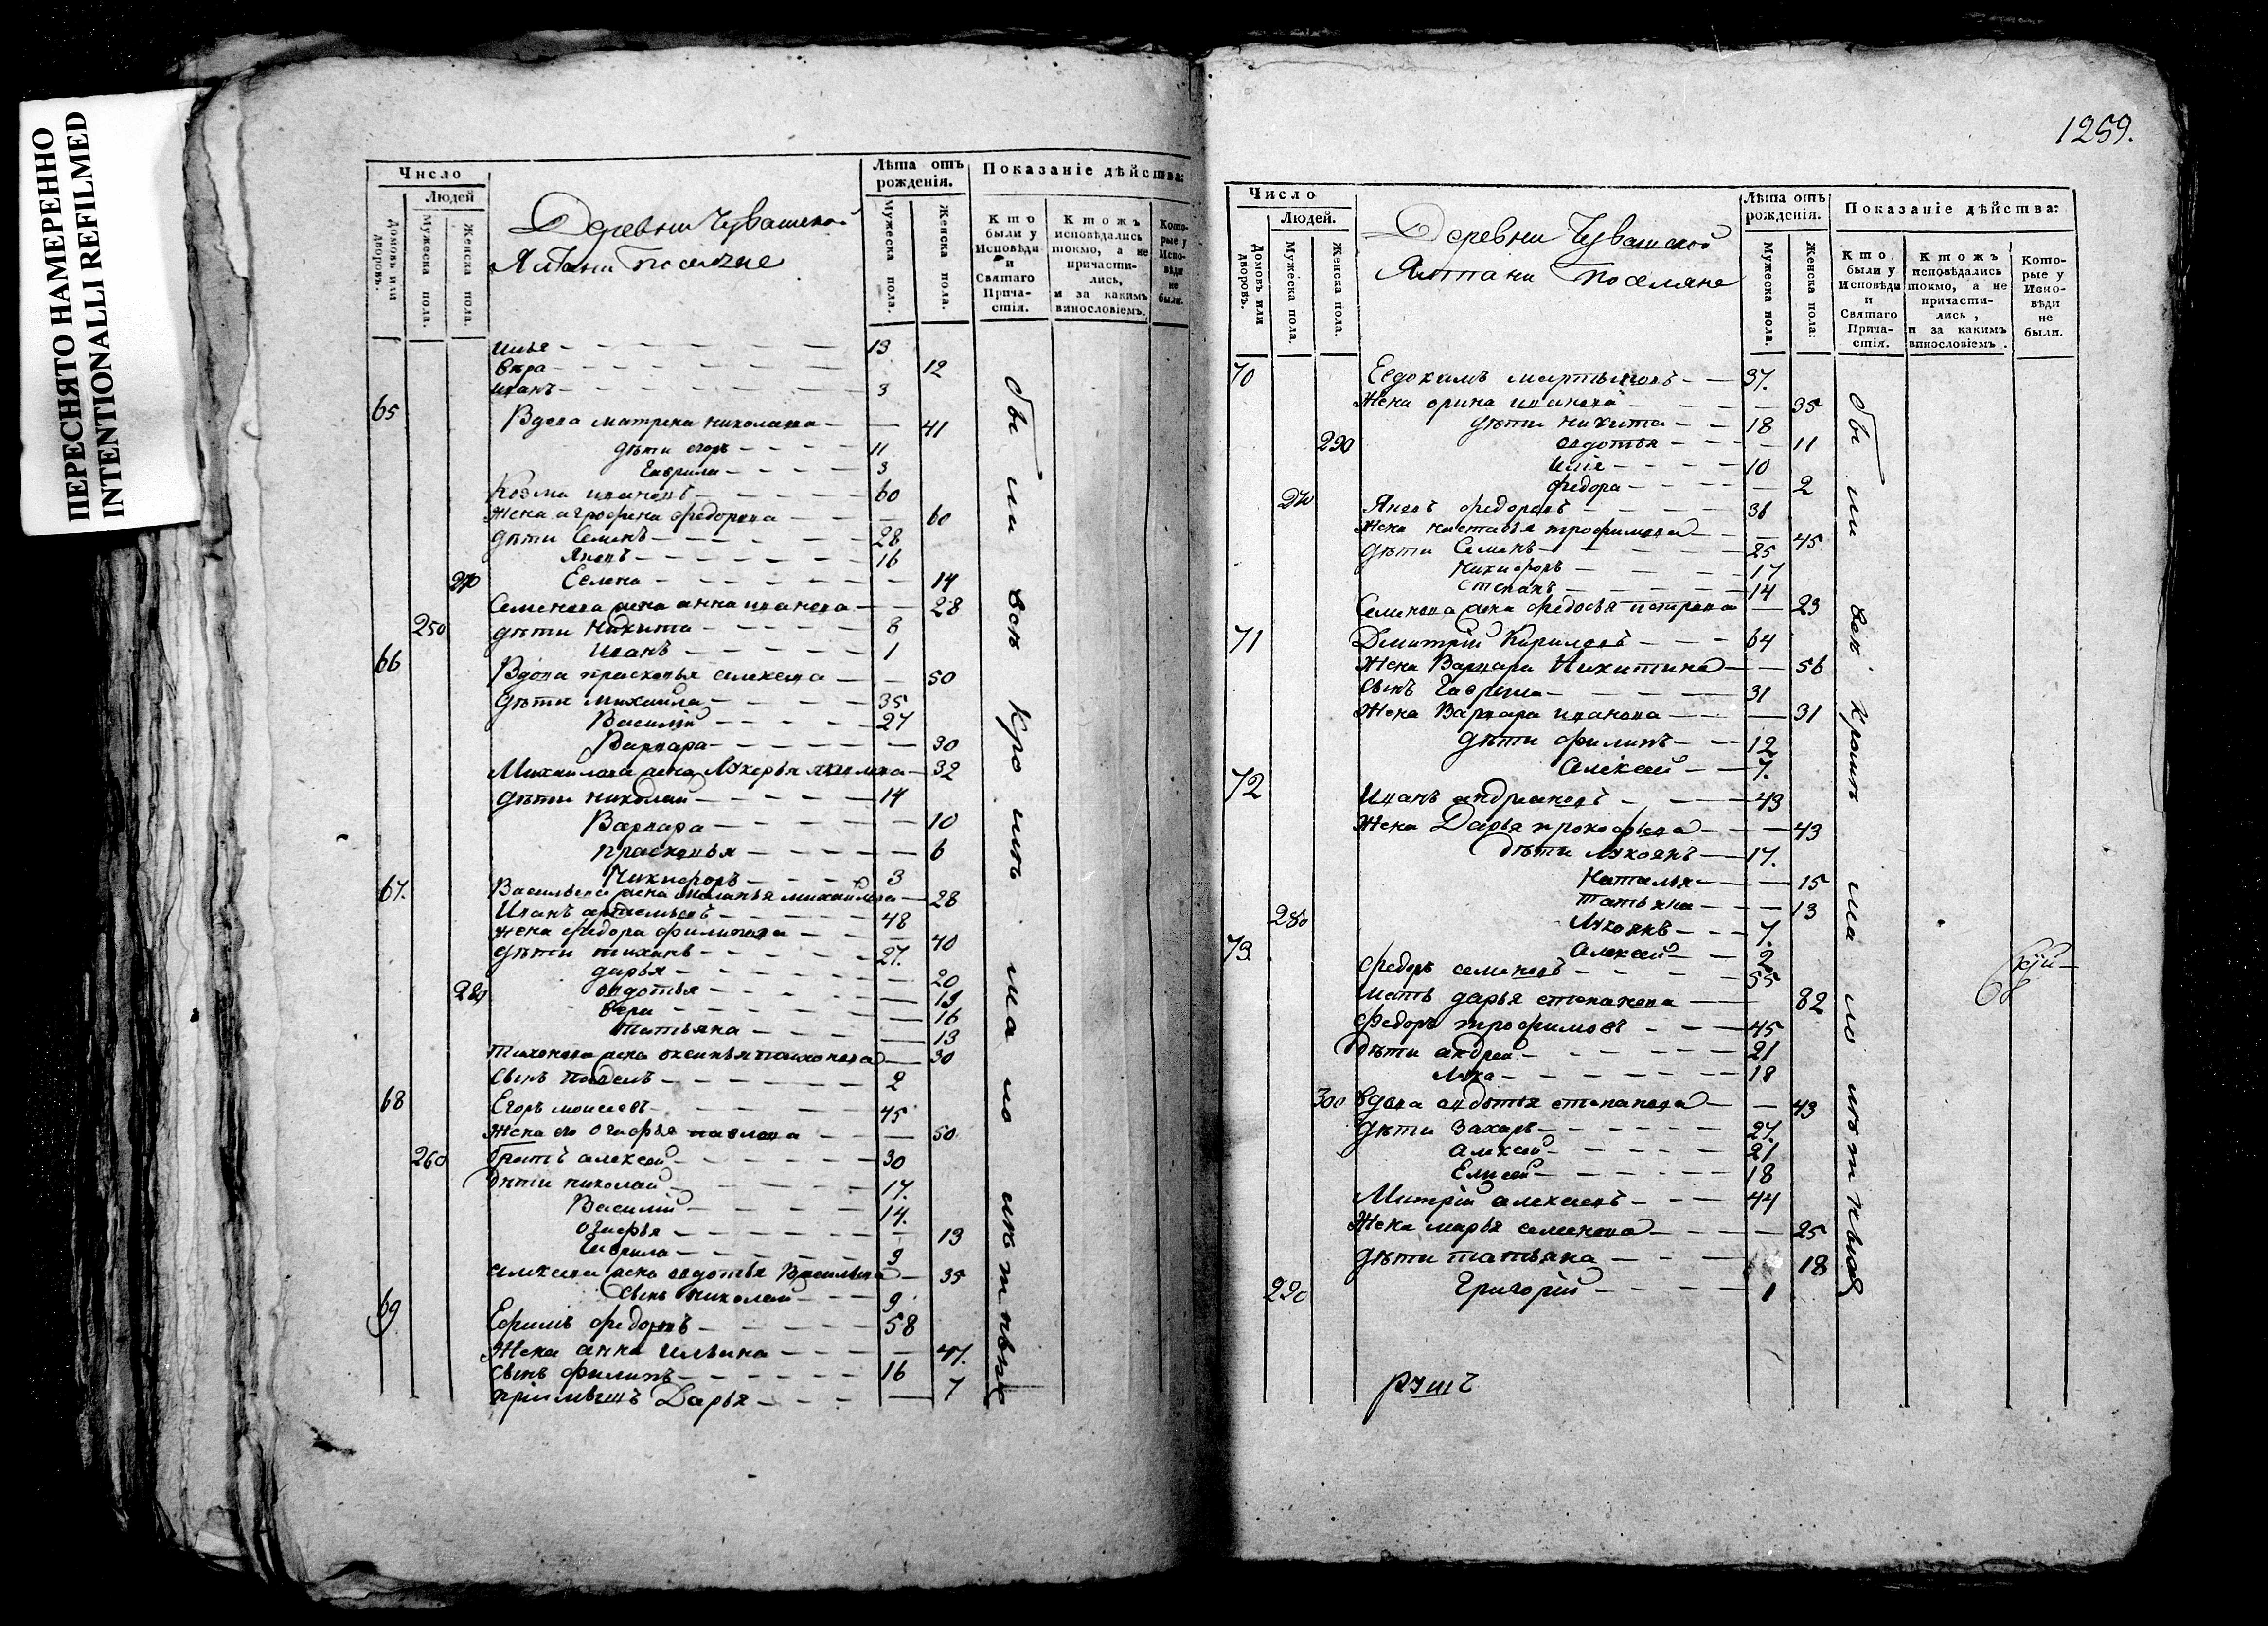 ПЕРЕСНЯТО НАМЕРЕННО
INTENTIONALLI REFILMED
Число
Людей
Домовъ или дворовъ.
Мужеска пола.
Женска пола.
Деревни Чувашской
Алтани поселяне
Лѣта отъ рожденія.
Мужеска пола.
Женска пола.
Показаніе дѣйства:
Кто были у Исповѣди и Святаго Прича-стія.
Ктожъ исповѣдались токмо, а не причасти-лись, и за какимъ винословіемъ.
Кото-рые у Испо-вѣди не были.
Илья 13
Вѣра 12
Иванъ 3
65 Вдова матрена николаева 41
дѣти егоръ 11
Гаврила 3
Козма ивановъ 60
Жена агрофена федорова 60
дѣти Семенъ 28
Яковъ 16
270 Еелена 14
Семенова жена анна иванова 28
250 дѣти Никита 8
Иванъ 1
66 Вдова прасковья алексева 50
дѣти михаила 35
Василій 27
Варвара 30
Михаилова жена Лукерья 32
дѣти николай 14
Варвара 10
прасковья 6
Никифоръ 3
67. Васильева жена маланья михайлова 28
Иванъ 48
Жена федора филипова 40
дѣти тихонъ 27.
дарья 20
280 овдотья 19
Вера 16
татьяна 13
Тихонова жена оксинья тихонова 30
сынъ павелъ 2
68 Егоръ моисеевъ 45
Жена его огафья павлова 50
260 братъ алексей 30
дѣти николай 17.
Василій 14.
огафья 13
Гаврила 9
алексева жена овдотья Васильева 35
сынъ николай 9
69 Ефимъ федоровъ 58
Жена анна ильина 47.
сынъ филипъ 16
пріимышъ Дарья 7
были всѣ кромѣ малолѣтныхъ
1259.
Число
Людей.
Домовъ или дворовъ.
Мужеска пола.
Женска пола.
Деревни Чувашской
Алтани поселяне
Лѣта отъ рожденія.
Мужеска пола.
Женска пола:
Показаніе дѣйства:
Кто были у Исповѣди и Святаго Прича-стія.
Ктожъ исповѣдались токмо, а не причасти-лись, и за какимъ винословіемъ.
Кото-рые у Испо-вѣди не были.
70 Евдокимъ мартыновъ 37.
Жена орина иванова 35
дѣти никита 18
290 овдотья 11
Илія 10
федора 2
270 Яковъ федоровъ 36
Жена настасья трофимова 45
дѣти Семенъ 25
Никифоръ 17
степанъ 14
Семенова жена федосья петрова 23
71 Дмитрій Кириловъ 64
Жена Варвара Никитина 56
сынъ Гаврила 31
Жена Варвара иванова 31
дѣти филипъ 12
алексей 7.
72 Иванъ андриановъ 43
Жена Дарья прокофьева 43
дѣти Лукоянъ 17.
Наталья 15
татьяна 13
280 Лукоянъ 7.
алексей 2
73. федоръ семеновъ 55
мать дарья степанова 82
федоръ трофимовъ 45
дѣти андрей 21
Лука 18
300 вдова овдотья степанова 43
дѣти Захаръ 27.
алексей 21
Елисей 18
Митрій алексеевъ 44
Жена марья семенова 25
дѣти татьяна 18
290 Григорій 1
были всѣ кромѣ малолѣтныхъ
68